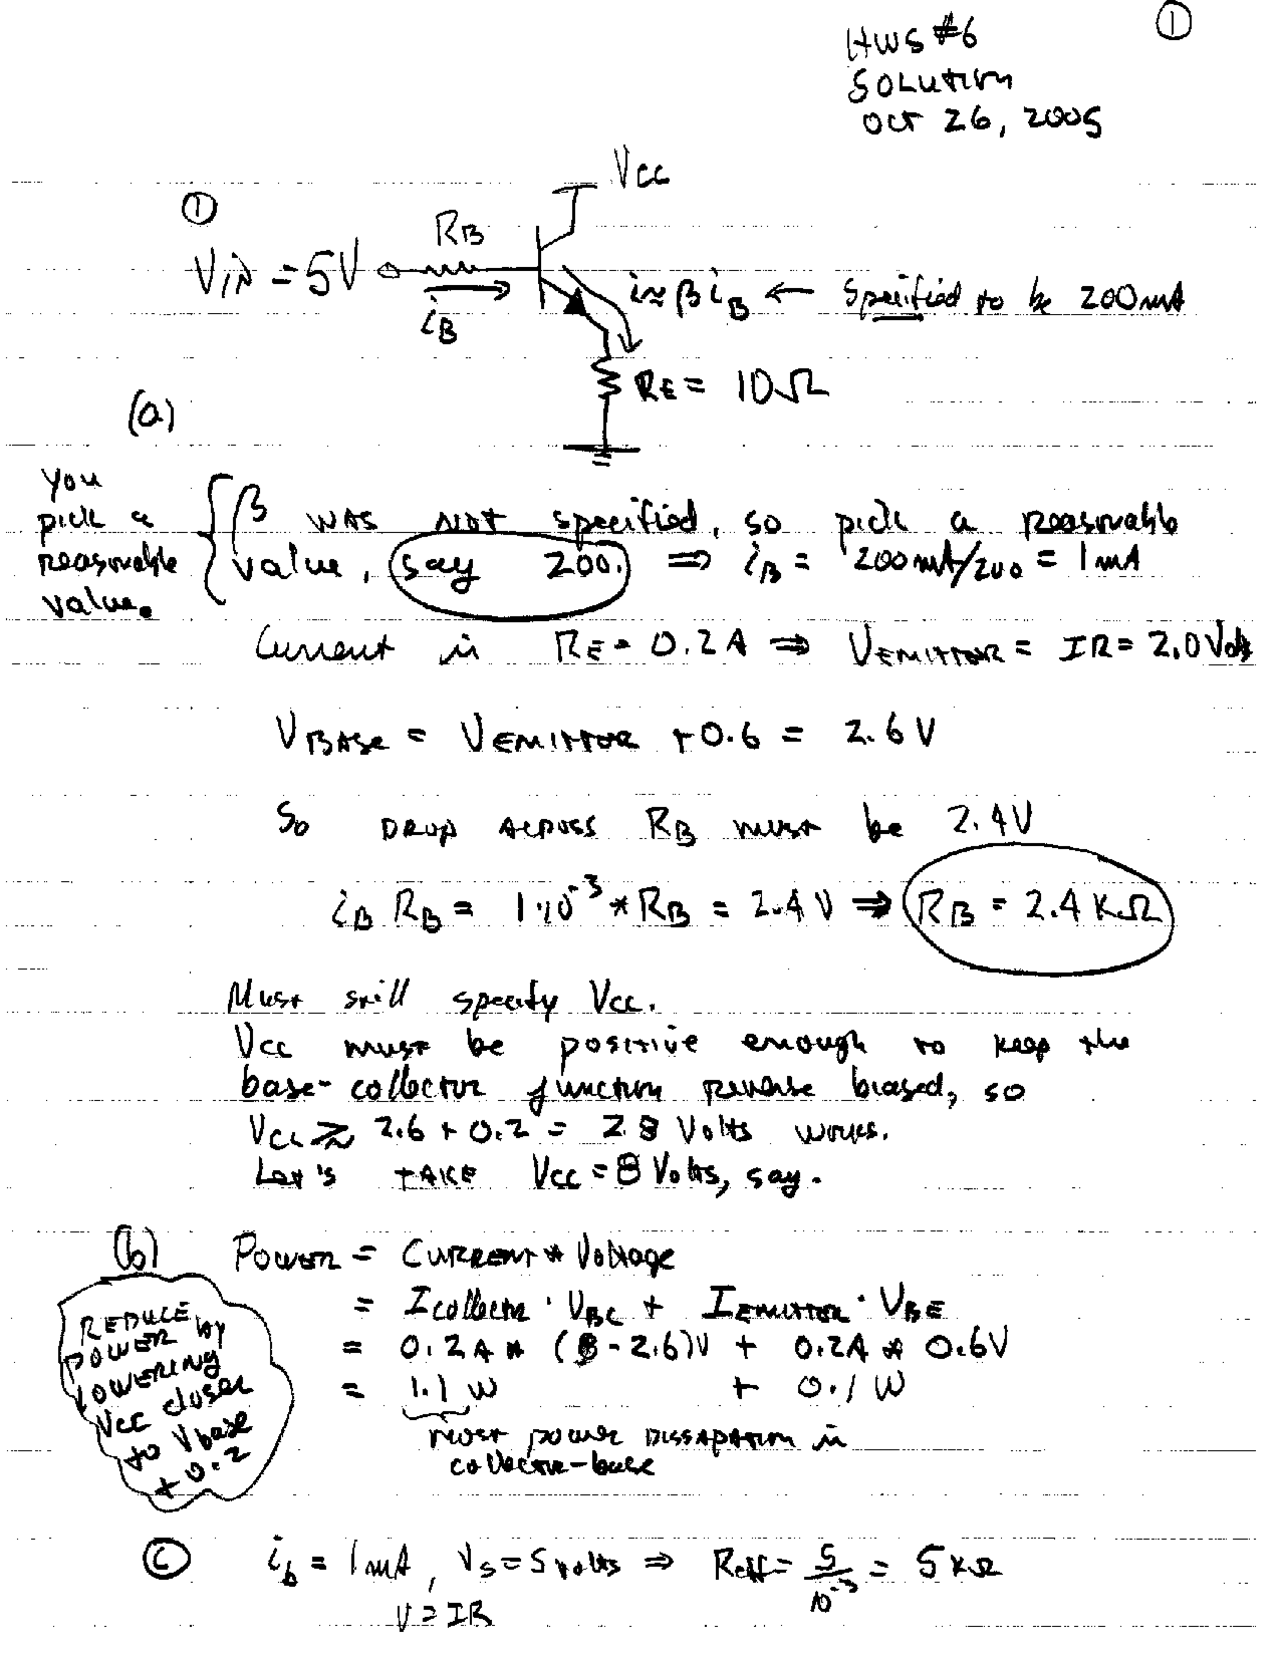 ①
HWS #6
SOLUTION
Oct 26, 2005
Vcc
①
RB
VIN = 5V
iB
i≈βiB ← Specified to be 200mA
RE = 10Ω
(a)
You pick a reasonable value.
β WAS NOT specified, so pick a reasonable
value, say 200. ⇒ iB = 200mA/200 = 1mA
Current in RE = 0.2A ⇒ VEMITTOR = IR = 2.0 Volts
VBASE = VEMITTOR + 0.6 = 2.6V
So DROP ACROSS RB must be 2.4V
iB RB = 1·10^-3 * RB = 2.4V ⇒ RB = 2.4KΩ
Must still specify Vcc.
Vcc must be positive enough to keep the
base-collector junction reverse biased, so
Vcc ≳ 2.6 + 0.2 = 2.8 Volts works.
Let's TAKE Vcc = 8 Volts, say.
(b) POWER = CURRENT * Voltage
= Icollector · VBC + IEMITTER · VBE
= 0.2A * (8-2.6)V + 0.2A * 0.6V
= 1.1 W + 0.1 W
most power DISSAPATION in
collector-base
REDUCE
POWER by
LOWERING
Vcc closer
to Vbase
+ 0.2
(c) ib = 1mA, Vs = 5 volts ⇒ Reff = 5/10^-3 = 5KΩ
V = IR